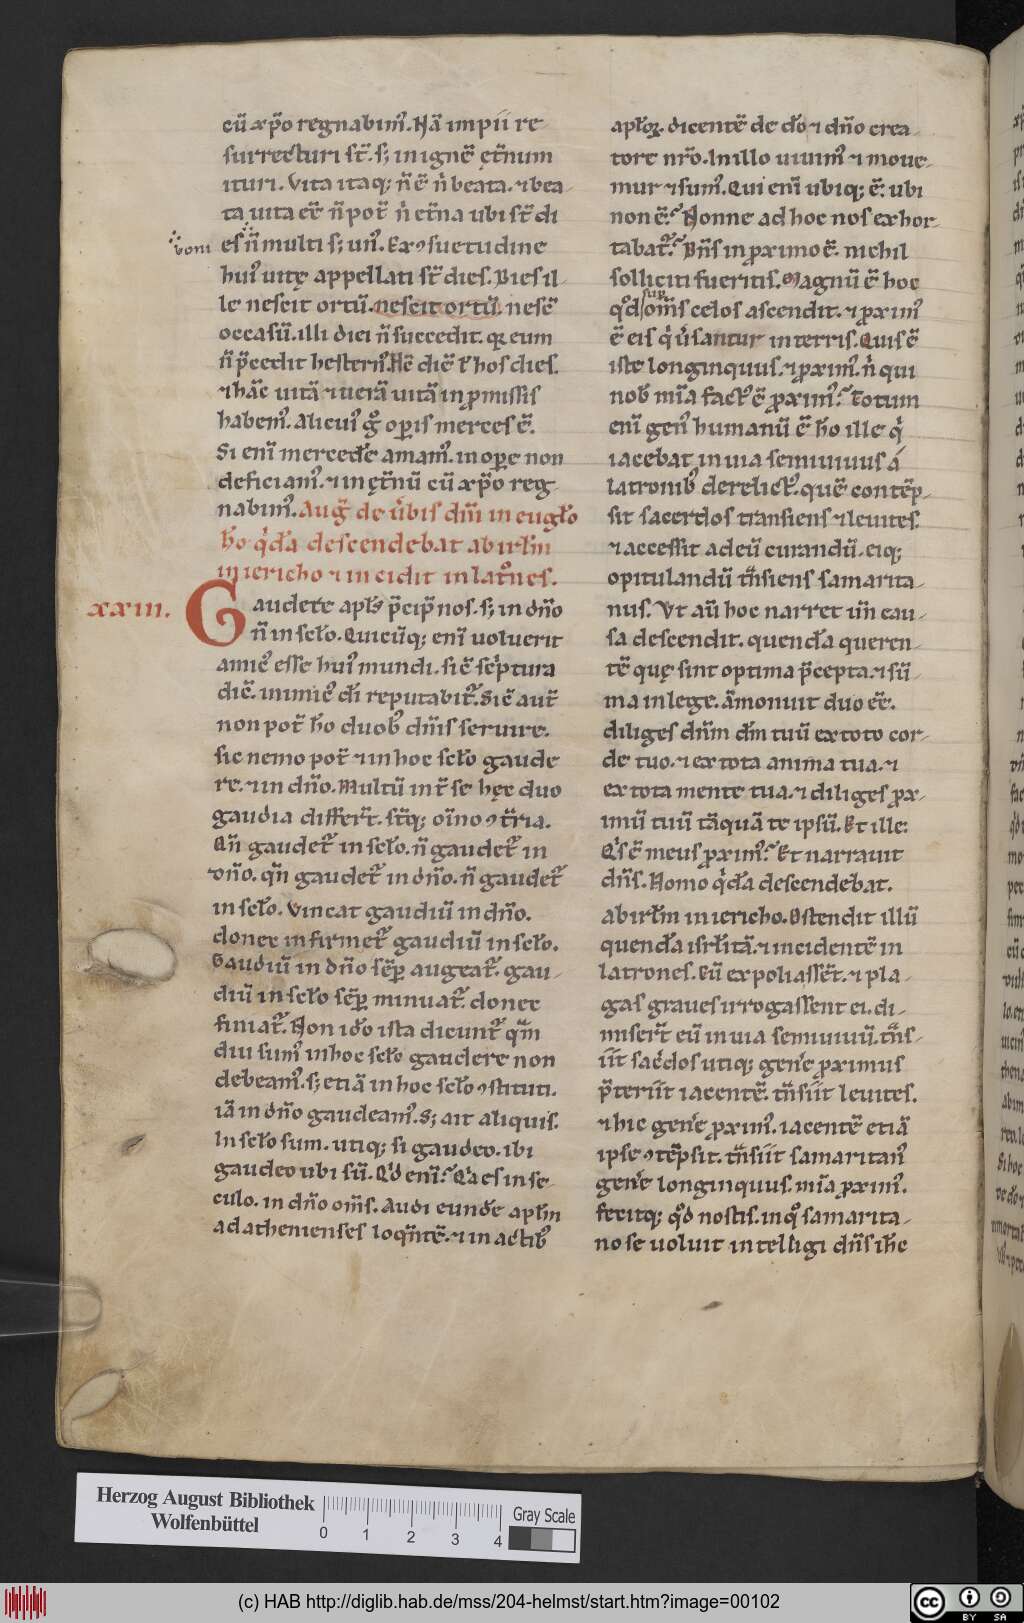 cū xp̄o regnabim᷒. Nā impii re-
surrecturi st̄. s; in ignē ęt̄num
ituri. Vita itaq; n̄ ē n̍ beata. ⁊ bea-
ta uita eē n̄ pot̄ n̍ et̄na ubi st̄ di
boni
es n̄ multi s; un᷒. Ex ꝯsuetudine
hui᷒ uitę appellati st̄ dies. Dies il-
le nescit ortū. nescit ortū. nesc̄
occasū. illi diei n̄ succedit. q̄ eum
n̄ p̄cedit hestern᷒. Hc̄ diē ł hos dies.
⁊ hāc uitā ⁊ uerā uitā in p̄missis
habem᷒. Alicui᷒ gͦ oꝑis merces ē.
Si enī mercedē amam᷒. in oꝑe non
deficiam᷒. ⁊ in ęt̄nū cū xp̄o reg-
nabim᷒. Auḡ de u̍bis dn̄i in eugło
h̄o q̍dā descendebat ab irłm
in iericho ⁊ in cidit in latͦnes.
xxiii. Gaudete apłs p̄cip̄ nos. s; in dn̄o
n̄ in scło. Quicūq; enī uoluerit
amic᷒ esse hui᷒ mundi. sic̄ sc̍ptura
dic̄. inimic᷒ dī reputabit᷑. Sic̄ aut̄
non pot̄ h̄o duob᷒ dn̄is seruire.
sic nemo pot̄ ⁊ in hoc scło gaude
re. ⁊ in dn̄o. Multū int̄ se hęc duo
gaudia differt᷑. st̄q; oīno ꝯt̄ria.
Qn̄ gaudet᷑ in scło. n̄ gaudet᷑ in
dn̄o. qn̄ gaudet᷑ in dn̄o. n̄ gaudet᷑
in scło. Vincat gaudiū in dn̄o.
donec infirmet᷑ gaudiū in scło.
Gaudiū in dn̄o sēꝑ augeat᷑. gau-
diū in scło sēꝑ minuat᷑. donec
finiat᷑. Non ido ista dicunt᷑ qm̄
diu sum᷒ in hoc scło gaudere non
debeam᷒. s; etiā in hoc scło ꝯstituti.
iā in dn̄o gaudeam᷒. S; ait aliquis.
In scło sum. utiq; si gaudeo. ibi
gaudeo ubi sū. Qͥd enī? Qͥa es in se-
culo. in dn̄o om̄s. Audi eundē apłm
ad athenienses loq̄ntē. ⁊ in actib᷒
apłoꝝ. dicentē de dō ⁊ dn̄o crea-
tore nr̄o. In illo uiuim᷒ ⁊ moue-
mur ⁊ sum᷒. Qui enī ubiq; ē. ubi
non ē? Nonne ad hoc nos exhor-
tabat᷑? Dn̄s in proximo ē. nichil
solliciti fueritis. Magnū ē hoc
sup
qͦd om̄s celos ascendit. ⁊ ꝓxim᷒
ē eis qͥ u̍santur in terris. Quis ē
iste longinquus. ⁊ ꝓxim᷒. n̍ qui
nob̄ mīa fact᷒ ē ꝓxim᷒? Totum
enī gen᷒ humanū ē h̄o ille qͥ
iacebat in uia semiuiuus á
latronib᷒ derelict᷒. quē contēp-
sit sacerdos transiens ⁊ leuites.
⁊ accessit ad eū curandū. eiq;
opitulandū t̄nsiens samarita-
nus. Vt aū hoc narret un̄ cau-
sa descendit. quendā queren-
tē quę sint optima p̄cepta. ⁊ sū-
ma in lege. āmonuit duo eē.
diliges dn̄m dm̄ tuū ex toto cor-
de tuo. ⁊ ex tota anima tua. ⁊
ex tota mente tua. ⁊ diliges ꝓx-
imū tuū tāquā te ipsū. Et ille.
Qͥs ē meus ꝓxim᷒? Et narrauit
dn̄s. Homo qͥdā descendebat.
ab irłm in iericho. Ostendit illū
quendā isrłitā. ⁊ incidentē in
latrones. Cū expoliassēt. ⁊ pla-
gas graues irrogassent ei. di-
miser̄t eū in uia semiuiuū. t̄ns-
iit sac̍dos utiq; gen̍e ꝓximus
p̄teriit iacentē. t̄nsiit leuites.
⁊ hic gen̍e ꝓxim᷒. iacentē etiā
ipse ꝯtēpsit. t̄nsiit samaritan᷒
gen̍e longinquus. mīa ꝓxim᷒.
fecitq; qͦd nostis. in qͦ samarita-
no se uoluit intelligi dn̄s ih̄c
Herzog August Bibliothek
Wolfenbüttel
0 1 2 3 4
Gray Scale
(c) HAB http://diglib.hab.de/mss/204-helmst/start.htm?image=00102
cc BY SA